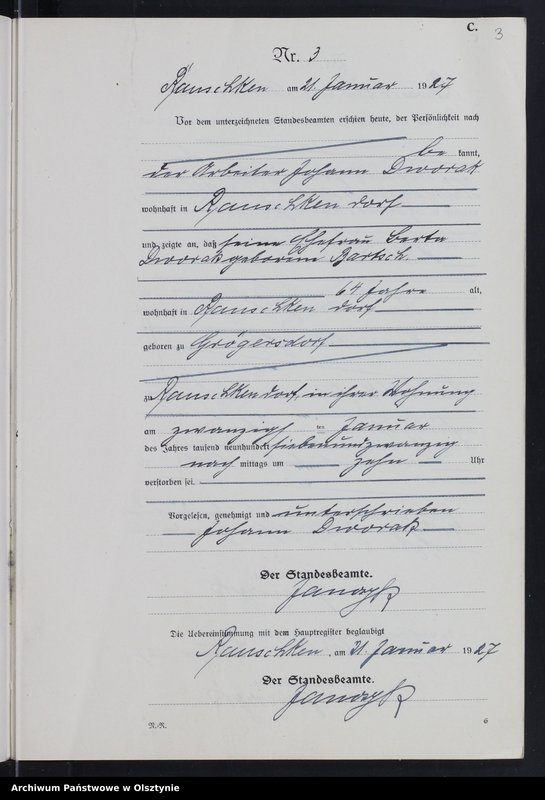 C.
3
Nr. 3
Rauschken am 21. Januar 1927
Vor dem unterzeichneten Standesbeamten erschien heute, der Persönlichkeit nach
be kannt,
der Arbeiter Johann Dworak
wohnhaft in Rauschken dorf
und zeigte an, daß seine Ehefrau Berta
Dworak geborene Bartsch
64 Jahre alt,
wohnhaft in Rauschken dorf
geboren zu Grögersdorf
zu Rauschkendorf, in ihrer Wohnung
am zwanzigsten Januar
des Jahres tausend neunhundert siebenundzwanzig
nach mittags um zehn Uhr
verstorben sei.
Vorgelesen, genehmigt und unterschrieben
Johann Dworak
Der Standesbeamte.
Die Uebereinstimmung mit dem Hauptregister beglaubigt
Rauschken, am 21. Januar 1927
Der Standesbeamte.
N.-R.
6
Archiwum Państwowe w Olsztynie